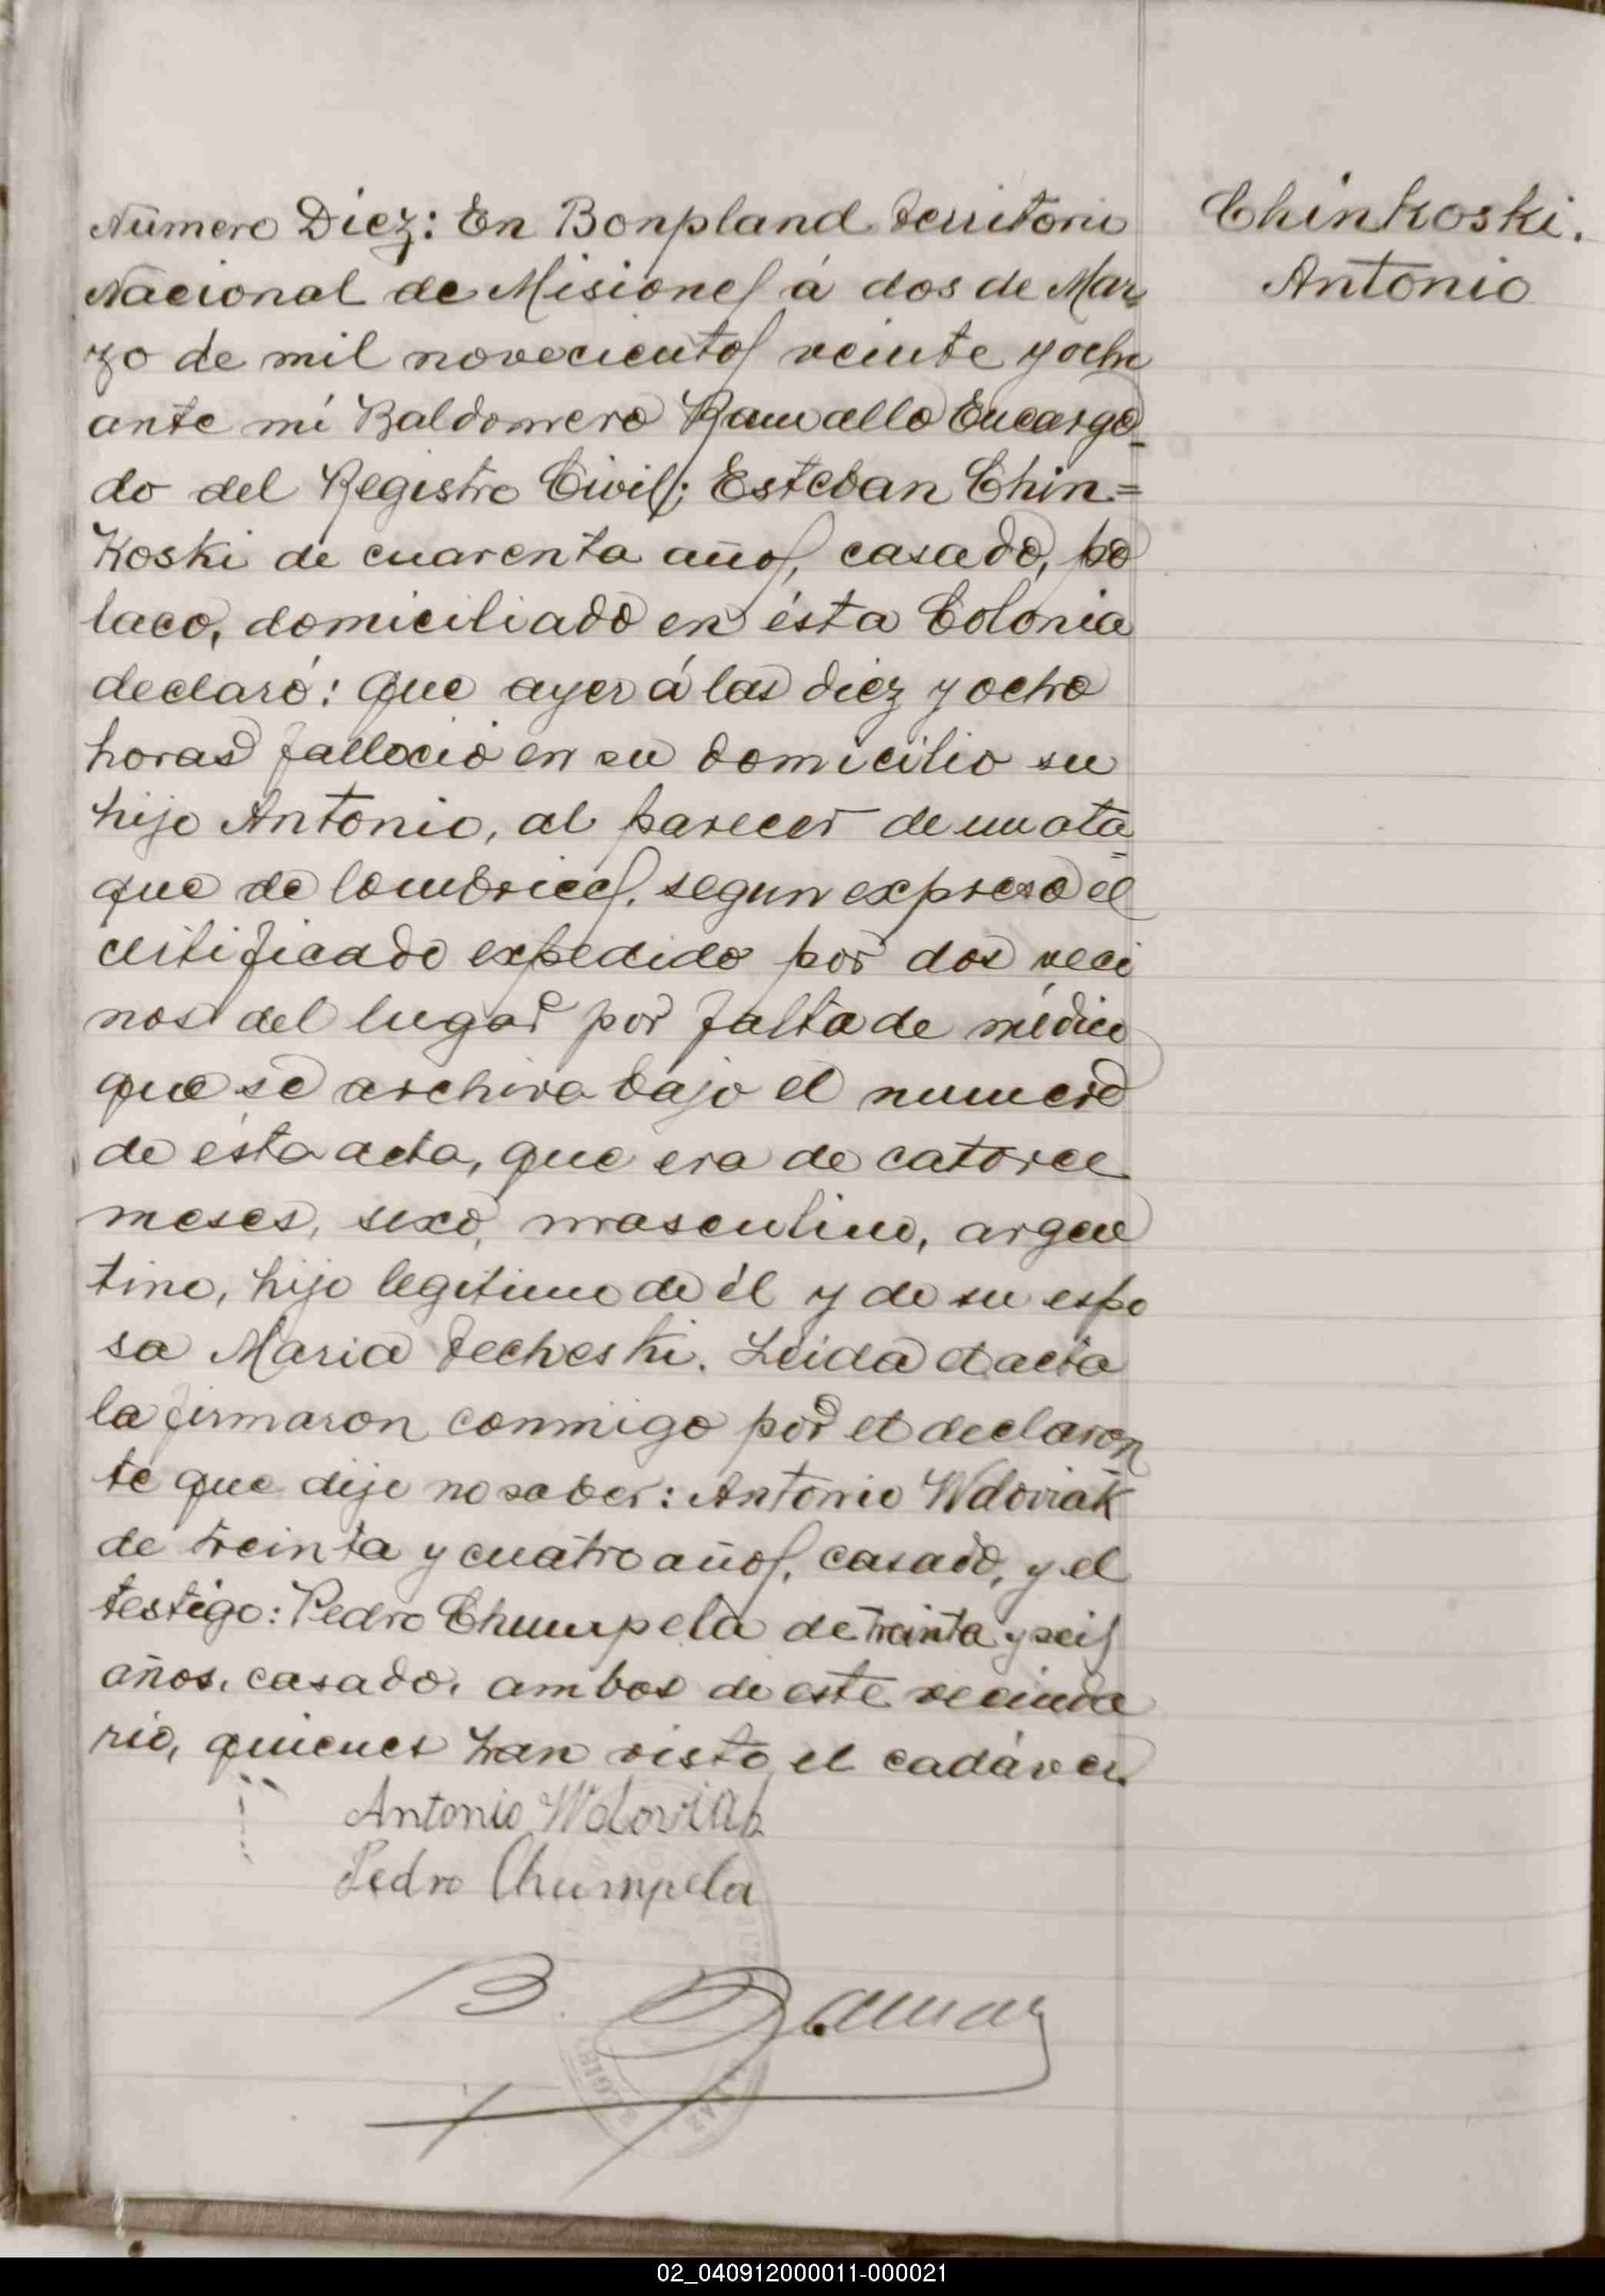 Chinkoski.
Antonio
Número Diez: En Bonpland Territorio
Nacional de Misiones á dos de Mar
zo de mil novecientos veinte y ocho
ante mí Baldomero Ramallo Encarga
do del Registro Civil; Esteban Chin=
Koski de cuarenta años, casado, po
laco, domiciliado en ésta Colonia
declaró: que ayer á las diez y ocho
horas falleció en su domicilio su
hijo Antonio, al parecer de un ata
que de lombrices, segun expresa el
certificado expedido por dos veci
nos del lugar por falta de médico
que se archiva bajo el numero
de ésta acta, que era de catorce
meses, sexo, masculino, argen
tino, hijo legitimo de él y de su espo
sa Maria Techeski. Leida el acta
la firmaron conmigo por el declaran
te que dijo no saber: Antonio Wdoviak
de treinta y cuatro años, casado, y el
testigo: Pedro Chumpela de treinta y seis
años, casado, ambos de este vecinda
rio, quienes han visto el cadáver.
Antonio Wdoviak
Pedro Chumpela
B.
02_040912000011-000021